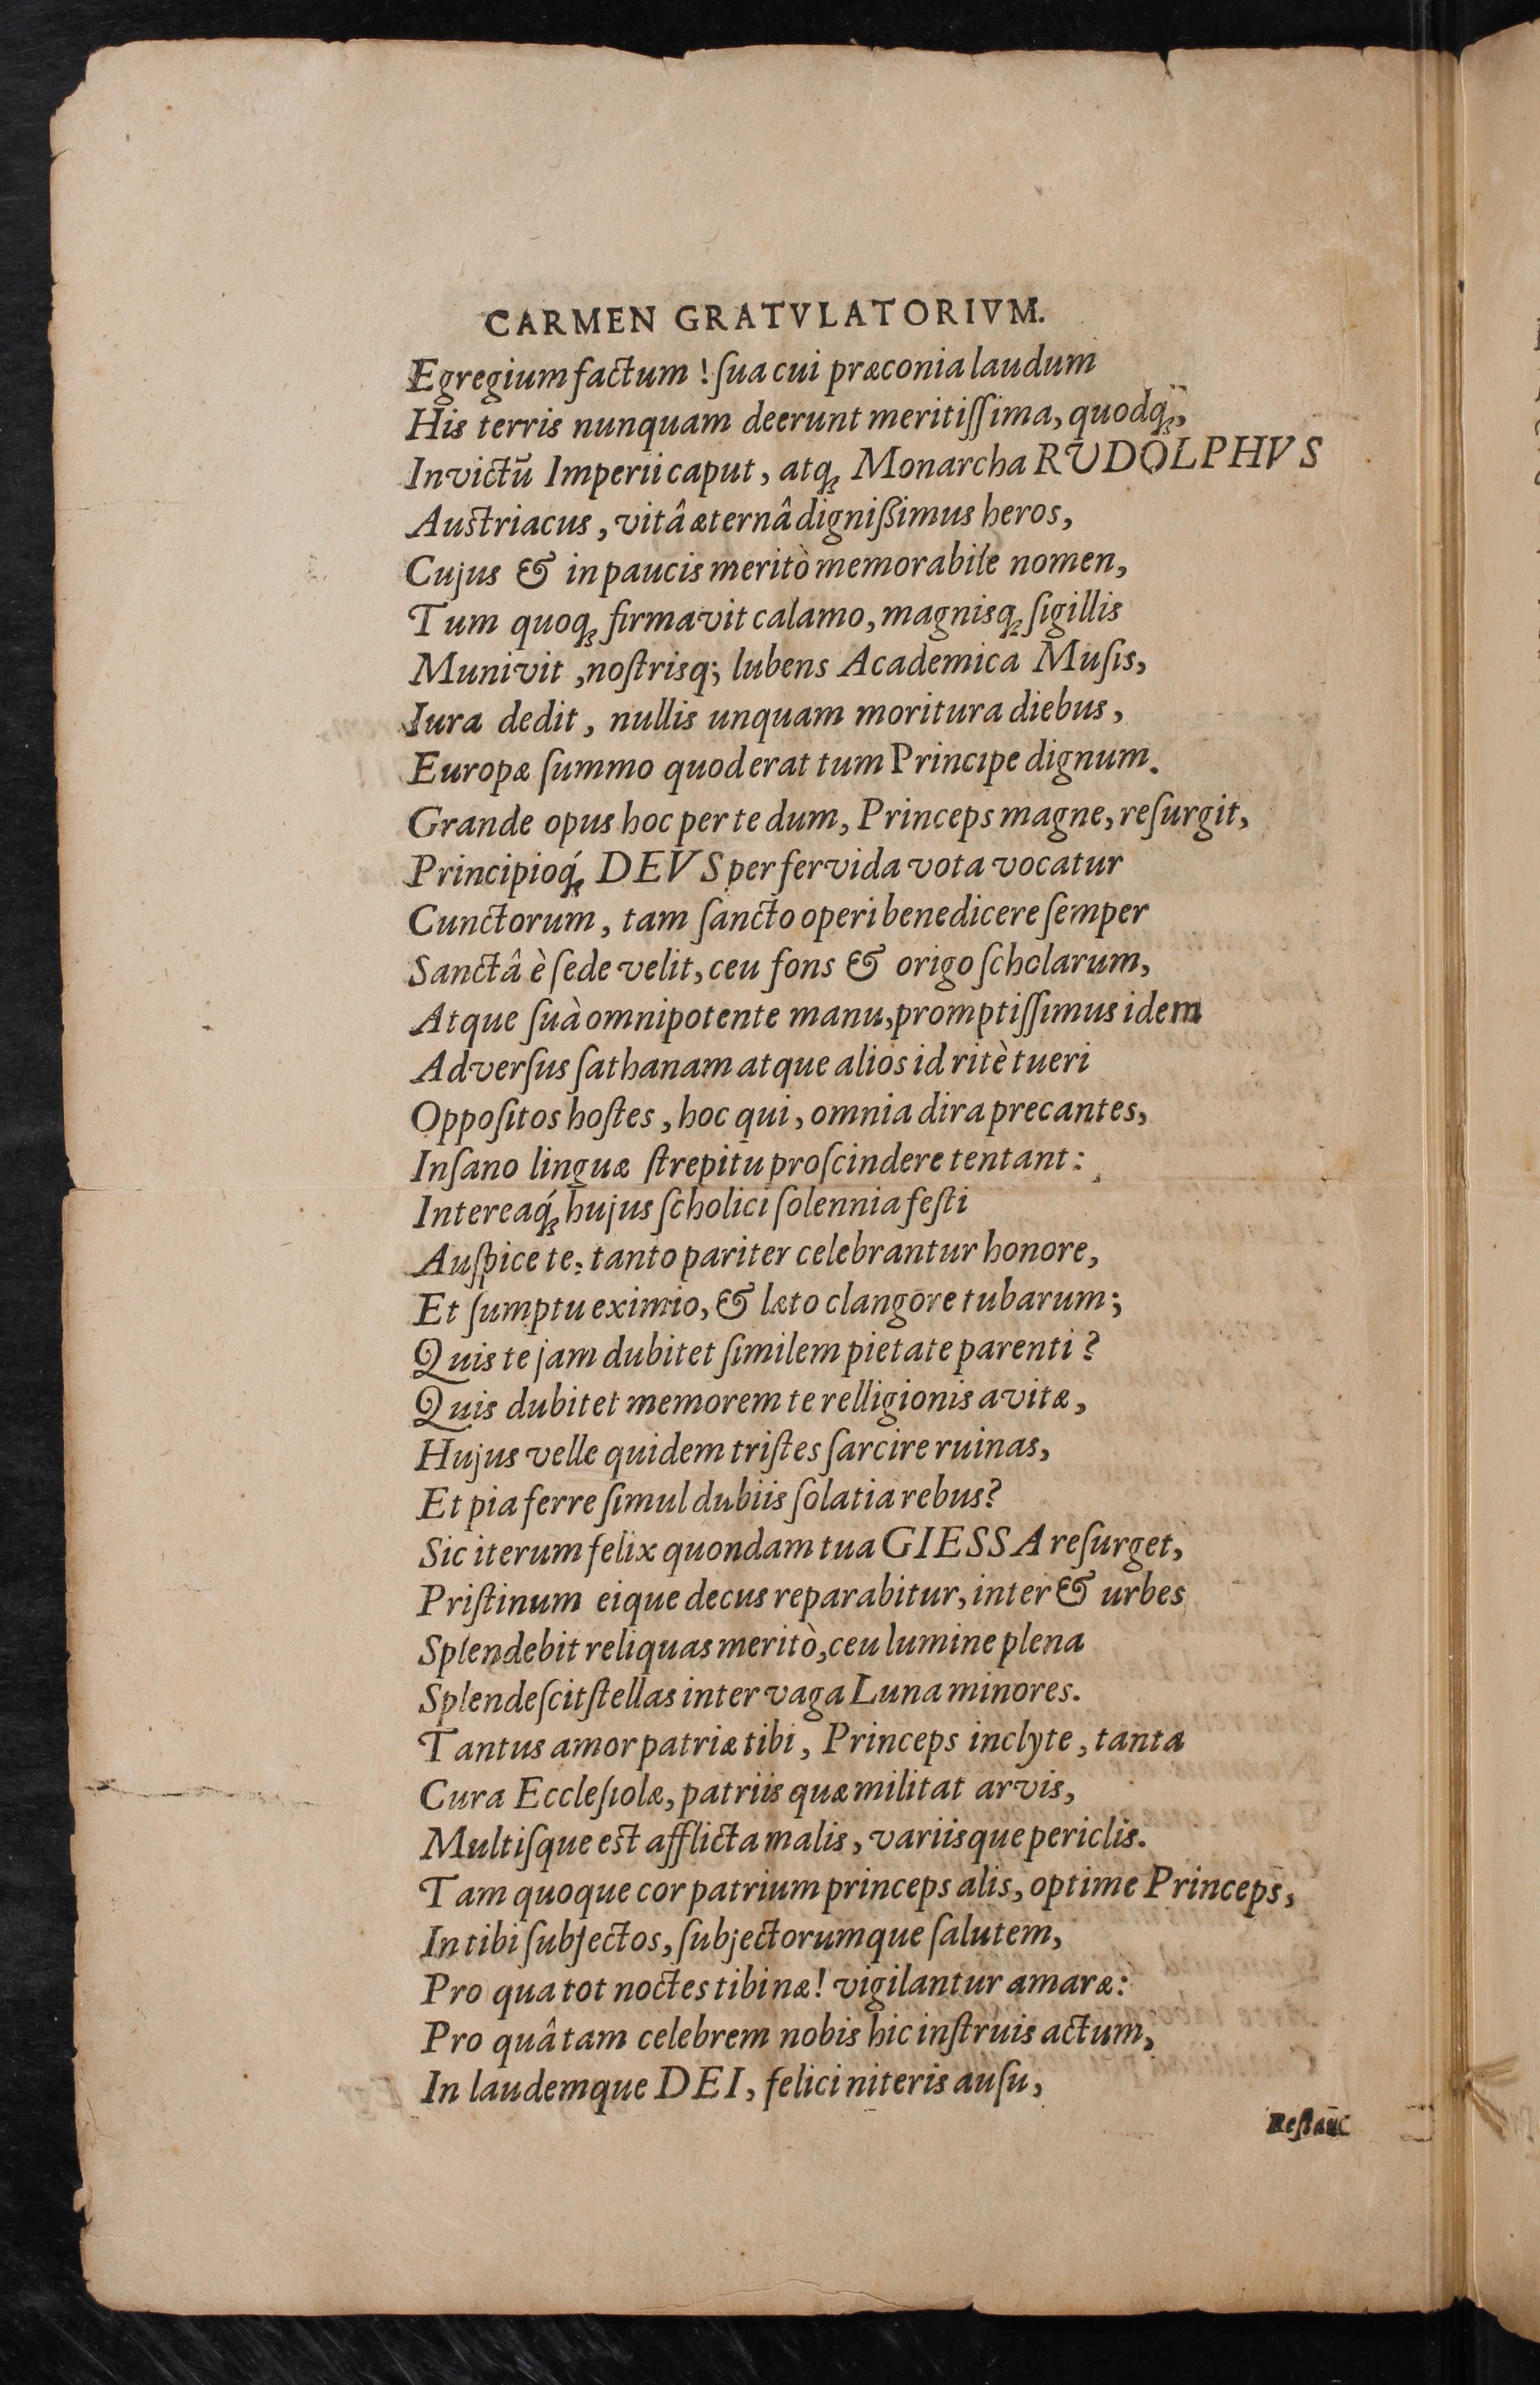 CARMEN GRATVLATORIVM.
Egregium factum ! ſua cui præconia laudum
His terris nunquam deerunt meritiſſima, quodq́ꝫ,
Invictū Imperii caput, atqꝫ Monarcha RUDOLPHVS
Austriacus, vitâ æternâ dignißimus heros,
Cujus & in paucis meritò memorabile nomen,
Tum quoqꝫ firmavit calamo, magnisqꝫ ſigillis
Munivit, noſtrisq; lubens Academica Muſis,
Iura dedit, nullis unquam moritura diebus,
Europæ ſummo quod erat tum Principe dignum.
Grande opus hoc per te dum, Princeps magne, reſurgit,
Principioq́ꝫ DEVS per fervida vota vocatur
Cunctorum, tam ſancto operi benedicere ſemper
Sanctâ è ſede velit, ceu fons & origo ſcholarum,
Atque ſuà omnipotente manu, promptiſſimus idem
Adverſus ſathanam atque alios id ritè tueri
Oppoſitos hoſtes, hoc qui, omnia dira precantes,
Inſano linguæ ſtrepitu proſcindere tentant:
Intereaq́ꝫ hujus ſcholici ſolennia feſti
Auſpice te, tanto pariter celebrantur honore,
Et ſumptu eximio, & læto clangore tubarum;
Quis te jam dubitet ſimilem pietate parenti ?
Quis dubitet memorem te relligionis avitæ,
Hujus velle quidem triſtes ſarcire ruinas,
Et pia ferre ſimul dubiis ſolatia rebus?
Sic iterum felix quondam tua GIESSA reſurget,
Priſtinum eique decus reparabitur, inter & urbes
Splendebit reliquas meritò, ceu lumine plena
Splendeſcit ſtellas inter vaga Luna minores.
Tantus amor patriæ tibi, Princeps inclyte, tanta
Cura Eccleſiolæ, patriis quæ militat arvis,
Multiſque est afflicta malis, variisque periclis.
Tam quoque cor patrium princeps alis, optime Princeps,
In tibi ſubjectos, ſubjectorumque ſalutem,
Pro qua tot noctes tibi næ! vigilantur amaræ:
Pro quâ tam celebrem nobis hic inſtruis actum,
In laudemque DEI, felici niteris auſu,